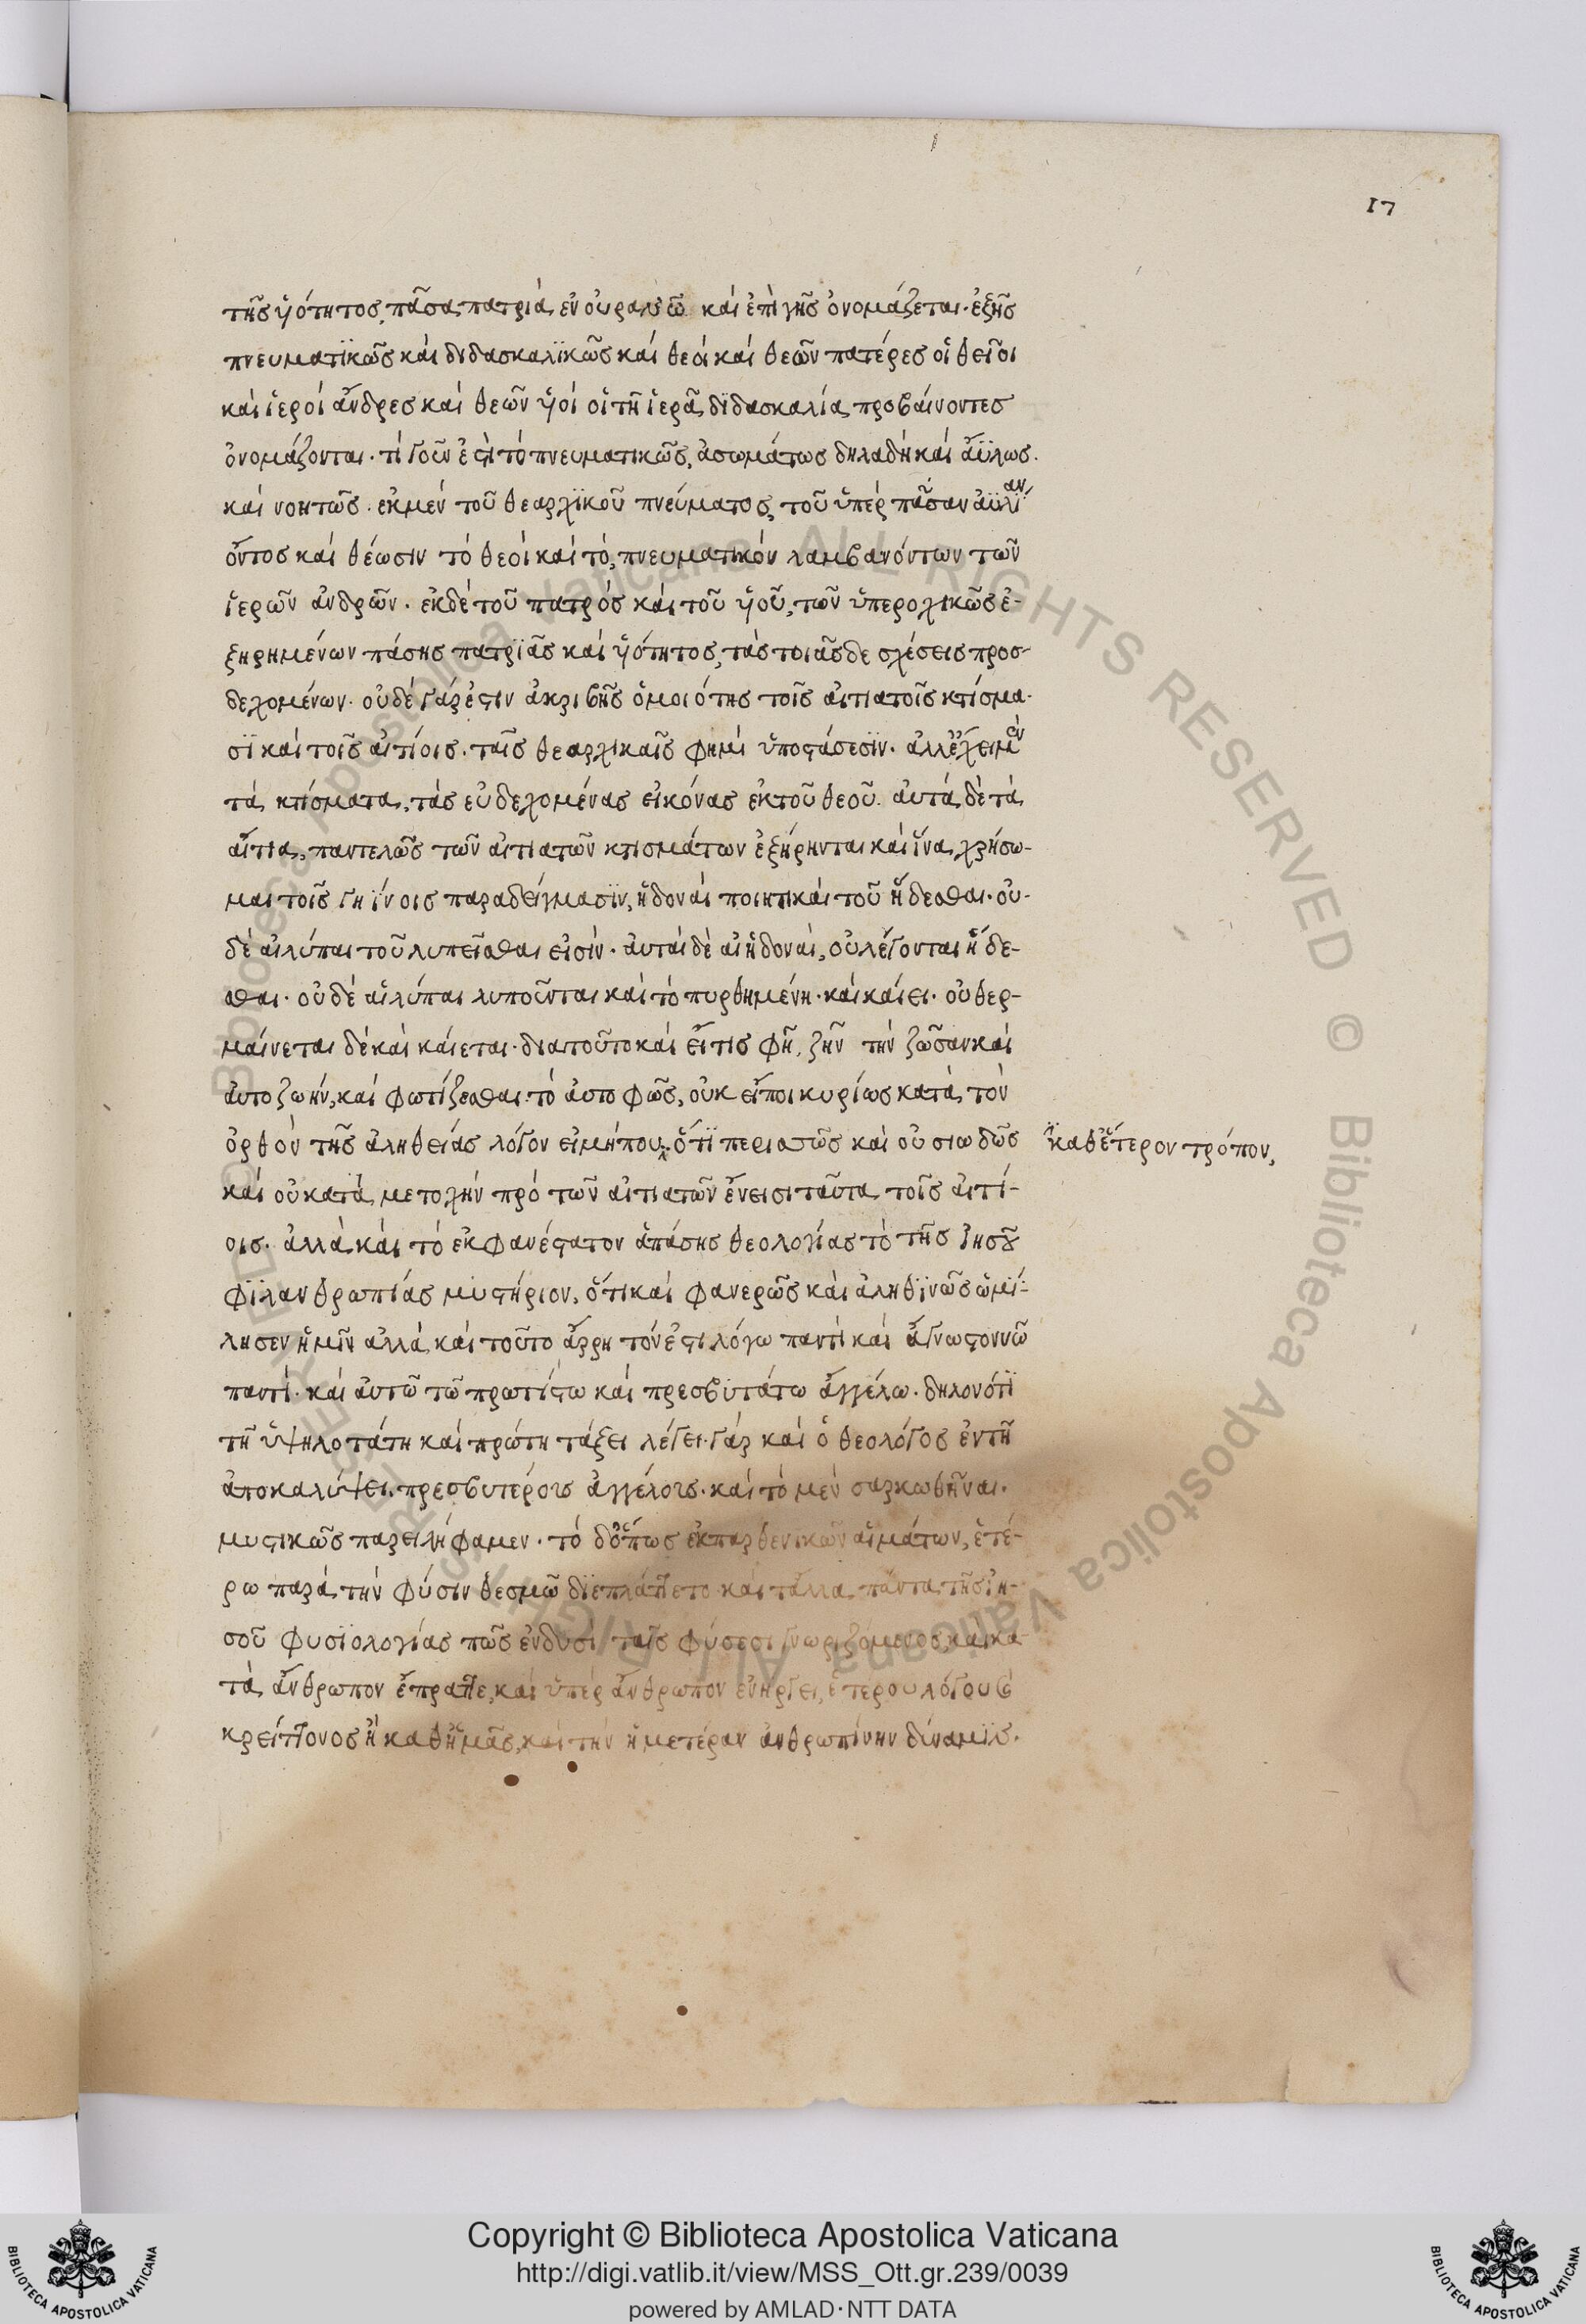 17
τῆς ὑότητος, πᾶσα πατριὰ ἐν οὐρανῶ καὶ ἐπὶ γῆς ὀνομάζεται· ἐξῆς
πνευματϊκῶς καὶ διδασκαλϊκῶς καὶ θεοὶ καὶ θεῶν πατέρες οἱ θεῖοι
καὶ ἱεροὶ ἄνδρες καὶ θεῶν ὑοὶ οἱ τῆ ἱερᾶ δϊδασκαλία προβαίνοντες
ὀνομάζονται· τί γοῦν ἐστὶ τὸ πνευματικῶς, ἀσωμάτως δηλαδὴ καὶ ἀΰλως·
καὶ νοητῶς· ἐκ μὲν τοῦ θεαρχϊκοῦ πνεύματος, τοῦ ὑπὲρ πᾶσαν ἀϋλίαν
ὄντος καὶ θέωσιν τὸ θεοὶ καὶ τὸ, πνευματικὸν λαμβανόντων τῶν
ἱερῶν ἀνδρῶν· ἐκ δὲ τοῦ πατρὸς καὶ τοῦ ὑοῦ, τῶν ὑπεροχικῶς ἐ-
ξηρημένων πάσης πατρϊᾶς καὶ ὑότητος, τὰς τοιᾶσδε σχέσεις προσ-
δεχομένων· οὐδὲ γάρ ἐστιν ἀκριβὴς ὁμοιότης τοῖς αἰτιατοῖς κτίσμα-
σϊ καὶ τοῖς αἰτίοις· ταῖς θεαρχικαῖς φημὶ ὑποστάσεσϊν· ἀλλ' ἔχει μὲν
τὰ κτίσματα, τὰς εὐδεχομένας εἰκόνας ἐκ τοῦ θεοῦ· αὐτὰ δὲ τὰ
αἴτια, παντελῶς τῶν αἰτιατῶν κτισμάτων ἐξήρηνται καὶ ἵνα χρήσω-
μαι τοῖς γηΐνοις παραδείγμασϊν, ἡδοναὶ ποιητικαὶ τοῦ ἥδεσθαι· οὐ-
δὲ αἱ λύπαι τοῦ λυπεῖσθαι εἰσὶν· αὐταὶ δὲ αἱ ἡδοναὶ, οὐ λέγονται ἥδε-
σθαι· οὐδὲ αἱ λύπαι λυποῦνται καὶ τὸ πυρθημένη· καὶ καίει· οὐ θερ-
μαίνεται δὲ καὶ καίεται· διατοῦτο καὶ εἴ τις φῆ, ζῆν τὴν ζῶσαν καὶ
αὐτοζωὴν, καὶ φωτίζεσθαι τὸ αὐτοφῶς, οὐκ εἴποι κυρίως κατὰ τὸν
ὀρθὸν τῆς ἀληθείας λόγον εἰ μήπου ὅτϊ περισσῶς καὶ οὐσιωδῶς
ἢ καθ' ἕτερον τρόπον,
καὶ οὐ κατὰ μετοχὴν πρὸ τῶν αἰτιατῶν ἔνεισι ταῦτα τοῖς αἰτί-
οις· ἀλλὰ καὶ τὸ ἐκφανέστατον ἁπάσης θεολογίας τὸ τῆς Ἰησοῦ
φϊλανθρωπίας μυστήριον, ὅτι καὶ φανερῶς καὶ ἀληθϊνῶς ὡμί-
λησεν ἡμῖν ἀλλὰ καὶ τοῦτο ἄρρητόν ἐστι λόγω παντὶ καὶ ἄγνωστον νῶ
παντὶ· καὶ αὐτῶ τῶ πρωτίστω καὶ πρεσβυτάτω ἀγγέλω· δηλονότϊ
τῆ ὑψηλοτάτη καὶ πρώτη τάξει λέγει· γὰρ καὶ ὁ θεολόγος ἐν τῆ
ἀποκαλύψει πρεσβυτέροις ἀγγέλοις· καὶ τὸ μὲν σαρκωθῆναι·
μυστικῶς παρειλήφαμεν· τὸ δ' ὅπως ἐκ παρθενικῶν αἱμάτων, ἑτέ-
ρω παρὰ τὴν φύσιν θεσμῶ δϊεπλάττετο καὶ τἄλλα πάντα τῆς ἰη-
σοῦ φυσϊολογίας πῶς ἐν δυσὶ ταῖς φύσεσι γνωριζόμενος, καὶ κα-
τὰ ἄνθρωπον ἔπραττε, καὶ ὑπὲρ ἄνθρωπον ἐνήργει, ἑτέρου λόγου
κρείττονος ἢ καθ' ἡμᾶς, καὶ τὴν ἡμετέραν ἀνθρωπίνην δύναμϊς·
Copyright © Biblioteca Apostolica Vaticana
http://digi.vatlib.it/view/MSS_Ott.gr.239/0039
powered by AMLAD·NTT DATA